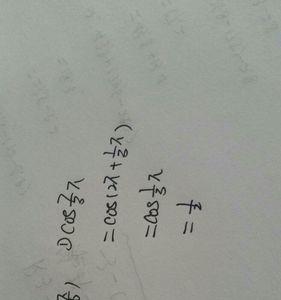 ① cos 7/3 π
= cos(2π + 1/3 π)
= cos 1/3 π
= 1/2